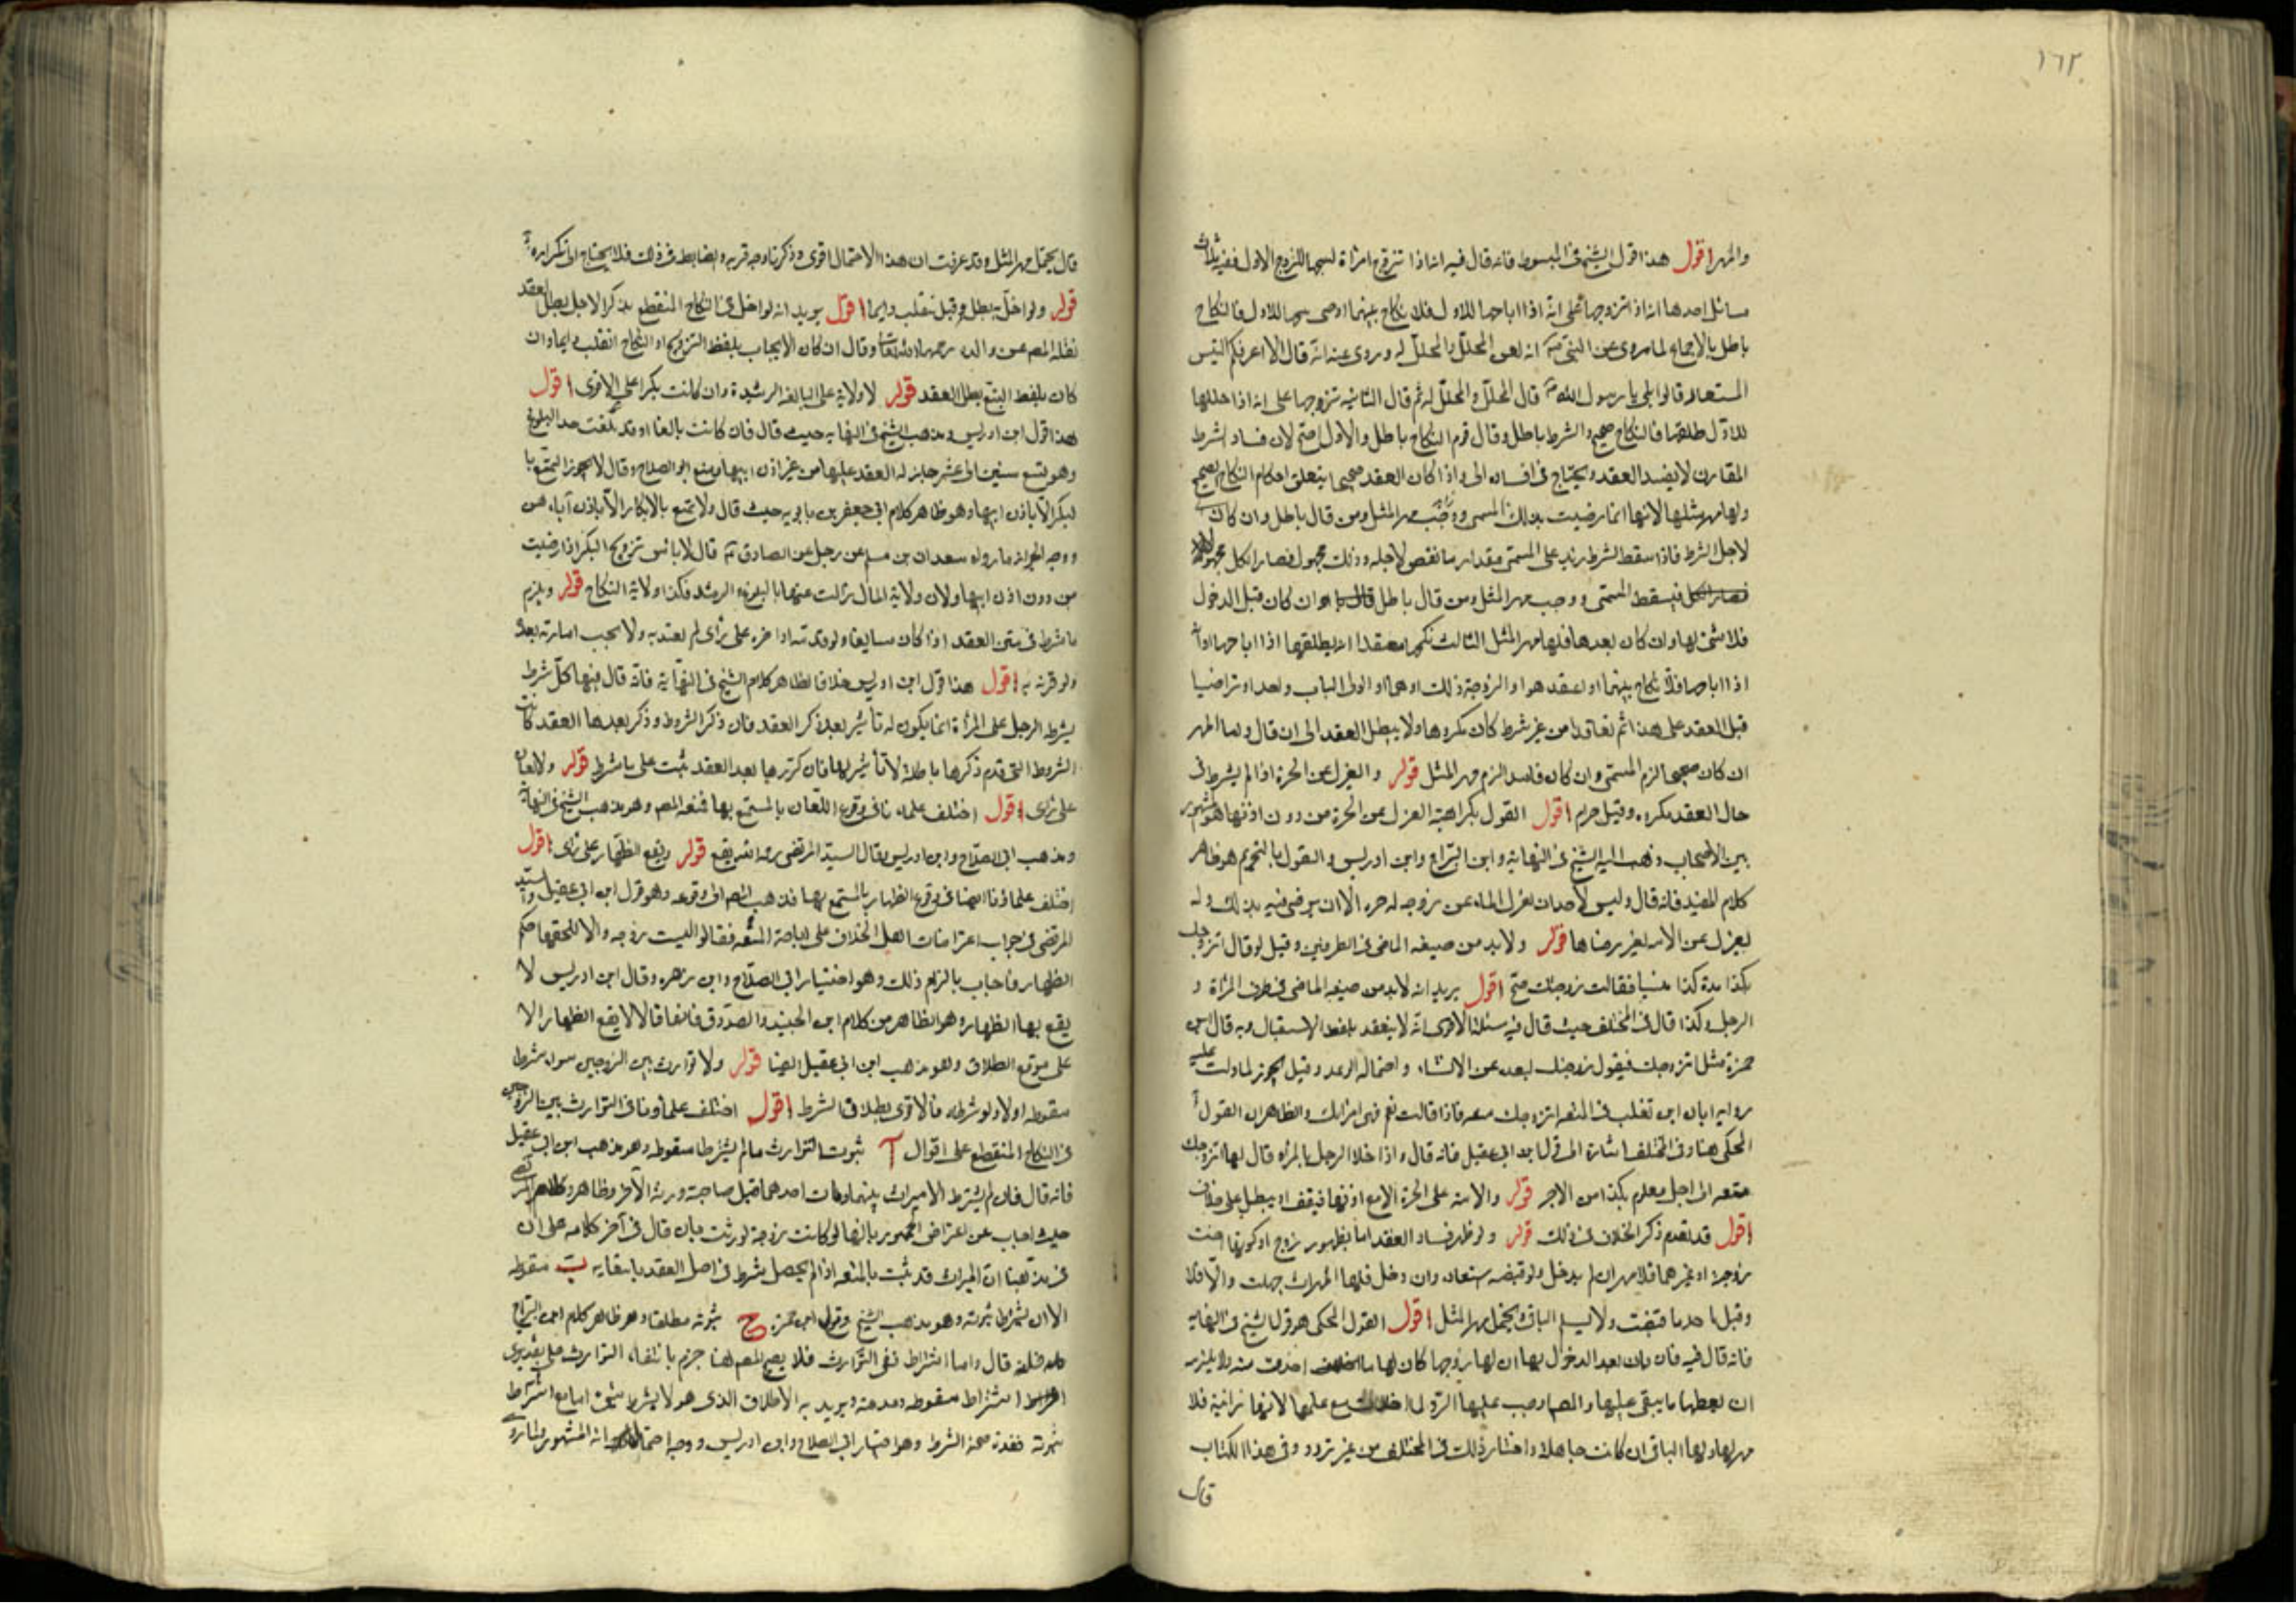 ١٦٢
والمهر اقول هذا قول الشيخ في المبسوط فانه قال فيه انه اذا تزوج امراة ليبيحها للزوج الاول ففيه ثلاث
مسائل احدها انه اذا تزوجها على انه اذا اباحها للاول فلا نكاح بينهما او حتى يبيحها للاول فالنكاح
باطل بالاجماع لما روى عن النبي انه لعن المحلل والمحلل له وروى عنه انه قال الا اعرفكم التيس
المستعار قالوا بلى يا رسول الله قال المحلل والمحلل له ثم قال الثانيه تزوجها على انه اذا حللها
للاول طلقها فالنكاح صحيح والشرط باطل وقال قوم النكاح باطل والاول اصح لان فساد الشرط
المقارن لا يفسد العقد ويحتاج في افساده الى واذا كان العقد صحيحا يتعلق احكام النكاح الصحيح
ولها مهر مثلها لانها انما رضيت بذلك المسمى ووجب مهر المثل ومن قال باطل وان كان
لاجل الشرط فاذا سقط الشرط زيد على المسمى مقدار ما نقص لاجله وذلك مجهول فصار الكل مجهولا
فيسقط المسمى ووجب مهر المثل ومن قال باطل وان كان قبل الدخول
فلا شئ لها وان كان بعدها فلها مهر المثل الثالث نكحها معتقدا انه يطلقها اذا اباحها او انه
اذا اباحها فلا نكاح بينهما او اعتقد هو او الزوجة ذلك او هما او الولى الباب واحد او تراضيا
قبل العقد على هذا ثم تعاقدا من غير شرط كان مكروها ولا يبطل العقد الى ان قال واما المهر
ان كان صحيحا لزم المسمى وان كان فاسدا لزم مهر المثل قوله والعزل عن الحرة اذا لم يشرط في
حال العقد مكروه وقيل حرام اقول القول بكراهية العزل عن الحرة من دون اذنها هو المشهور
بين الاصحاب وذهب اليه الشيخ في النهاية وابن البراج وابن ادريس والقول بالتحريم هو ظاهر
كلام المفيد فانه قال وليس لاحد ان يعزل الماء عن زوجه له حره الا ان يرضى فيه بذلك وله
يعزل عن الامه بغير رضاها قوله ولا بد من صيغه الماضى في الطرفين وقيل لو قال اتزوجك
بكذا مدة كذا فقالت زوجتك صح اقول يريد انه لابد من صيغه الماضى في طرف المرأة و
الرجل وكذا قال في المختلف حيث قال فيه مسئلة الاقوى انه لا ينعقد بلفظ الاستقبال وبه قال ابن
حمزة مثل اتزوجك فيقول زوجتك لبعده عن الانشاء واحتماله الوعد وقيل يجوز لما دلت عليه
رواية ابان ابن تغلب في المتعه اتزوجك متعه فاذا قالت نعم فهى امراتك والظاهر ان القول
المحكى هنا وفى المختلف اشارة الى قول ابن ابى عقيل فانه قال واذا خلا الرجل بالمراه قال لها اتزوجك
متعه الى اجل معلوم بكذا من الاجر قوله والامة على الحرة الا مع اذنها فيقف او يبطل على خلاف
اقول قد تقدم ذكر الخلاف في ذلك قوله ولو ظهر فساد العقد اما بظهور زوج او كونها اخت
زوجة او غيرهما فلا مهر ان لم يدخل ولو قبضه استعاده وان دخل فلها المهر ان جهلت والا فلا
وقيل تاخذ ما قبضت ولا يسلم الباقي ويحتمل مهر المثل اقول القول المحكى هو قول الشيخ في النهايه
فانه قال فيه فان بان بعد الدخول بها ان لها زوجا كان لها ما اخذت منه ولا يلزمه
ان يعطيها ما يبقى عليها والمص اوجب عليها الرد لما اخذت مع علمها لانها زانية فلا
مهر لها ولها الباقى ان كانت جاهلة واختار ذلك في المختلف من غير تردد وفى هذا الكتاب
قال
قال يحتمل مهر المثل وقد عرفت ان هذا الاحتمال اقوى وذكرنا وجه قربه والضابط في ذلك فلا يحتاج الى تكراره
قوله ولو اخل به بطل وقيل ينقلب دايما اقول يريد انه لو اخل في النكاح المنقطع بذكر الاجل بطل العقد
نقله المص عن والده رحمهما الله تعالى وقال ان كان الايجاب بلفظ التزويج او النكاح انقلب دايما وان
كان بلفظ المتع بطل العقد قوله لا ولاية على البالغة الرشيدة وان كانت بكرا على الاقوى اقول
هذا قول ابن ادريس ومذهب الشيخ في النهايه حيث قال فان كانت بالغا او قد بلغت حد البلوغ
وهو تسع سنين الى عشر جاز له العقد عليها من غير اذن ابيها ومنع ابو الصلاح وقال لا يجوز التمتع با
لبكر الا باذن ابيها وهو ظاهر كلام ابى جعفر بن بابويه حيث قال ولا تمتع بالابكار الا باذن آبائهن
ووجه الجواز ما رواه سعدان بن مسلم عن رجل عن الصادق قال لا باس تزويج البكر اذا رضيت
من دون اذن ابيها ولان ولاية المال زالت عنها بالبلوغ والرشد فكذا ولاية النكاح قوله ويلزم
ما شرط في متن العقد اذا كان سايغا ولو قدمه او اخره على رأى لم يعتد به ولا يجب اعادته بعده
ولو قرنه به اقول هذا قول ابن ادريس خلافا لظاهر كلام الشيخ في النهاية فانه قال فيها كل شرط
يشرط الرجل على المرأة انما يكون له تأثير بعد ذكر العقد فان ذكر الشروط وذكر بعدها العقد كانت
الشروط التى قدم ذكرها باطلة لا تأثير لها فان كررها بعد العقد ثبت على ما شرط قوله ولا لعان
على راى اقول اختلف علماؤنا فى وقوع اللعان بالمستمتع بها فمنعه المص وهو مذهب الشيخ في النهاية
ومذهب ابى الصلاح وابن ادريس وقال السيد المرتضى رحمه الله يقع قوله ويقع الظهار على راى اقول
اختلف علماؤنا ايضا فى وقوع الظهار بالمستمتع بها فذهب المص الى وقوعه وهو قول ابن ابى عقيل والسيد
المرتضى فى جواب اعتراضات اهل الخلاف على اباحة المتعه فقالوا ليست زوجه والا للحقها حكم
الظهار فاجاب بالزام ذلك وهو اختيار ابى الصلاح وابن زهره وقال ابن ادريس لا
يقع بها الظهار وهو الظاهر من كلام ابن الجنيد والصدوق فانهما قالا لا يقع الظهار الا
على موقع الطلاق وهو مذهب ابن ابى عقيل ايضا قوله ولا توارث بين الزوجين سواء شرط
سقوطه او لا ولو شرطه فالاقوى بطلان الشرط اقول اختلف علماؤنا فى التوارث بين الزوجين
فى النكاح المنقطع على اقوال آ ثبوت التوارث ما لم يشترطا سقوطه وهو مذهب ابن ابى عقيل
فانه قال فان لم يشترط الا ميراث بينهما ومات احدهما قبل صاحبه ورثه الآخر وظاهر
حيث اجاب عن اعتراض الجمهور بانها لو كانت زوجة لورثت بان قال فى آخر كلامه على ان
فى مذهبنا ان الميراث قد ثبت بالمتعه اذا لم يحصل شرط فى اصل العقد بانتفايه ب سقوطه
الا ان يشترط ثبوته وهو مذهب الشيخ وقول ابن حمزه ج ثبوته مطلقا وهو ظاهر كلام ابن البراج
قال واما اشتراط نفى التوارث فلا يصح المص هنا جزم بانتفاء التوارث على تقديرى
اشتراط سقوطه وعدمه ويريد به الاطلاق الذى هو لا بشرط شئ اما مع اشتراط
ثبوته فعنده صحة الشرط وهو اختيار ابى الصلاح وابن ادريس ووجه انه المشهور